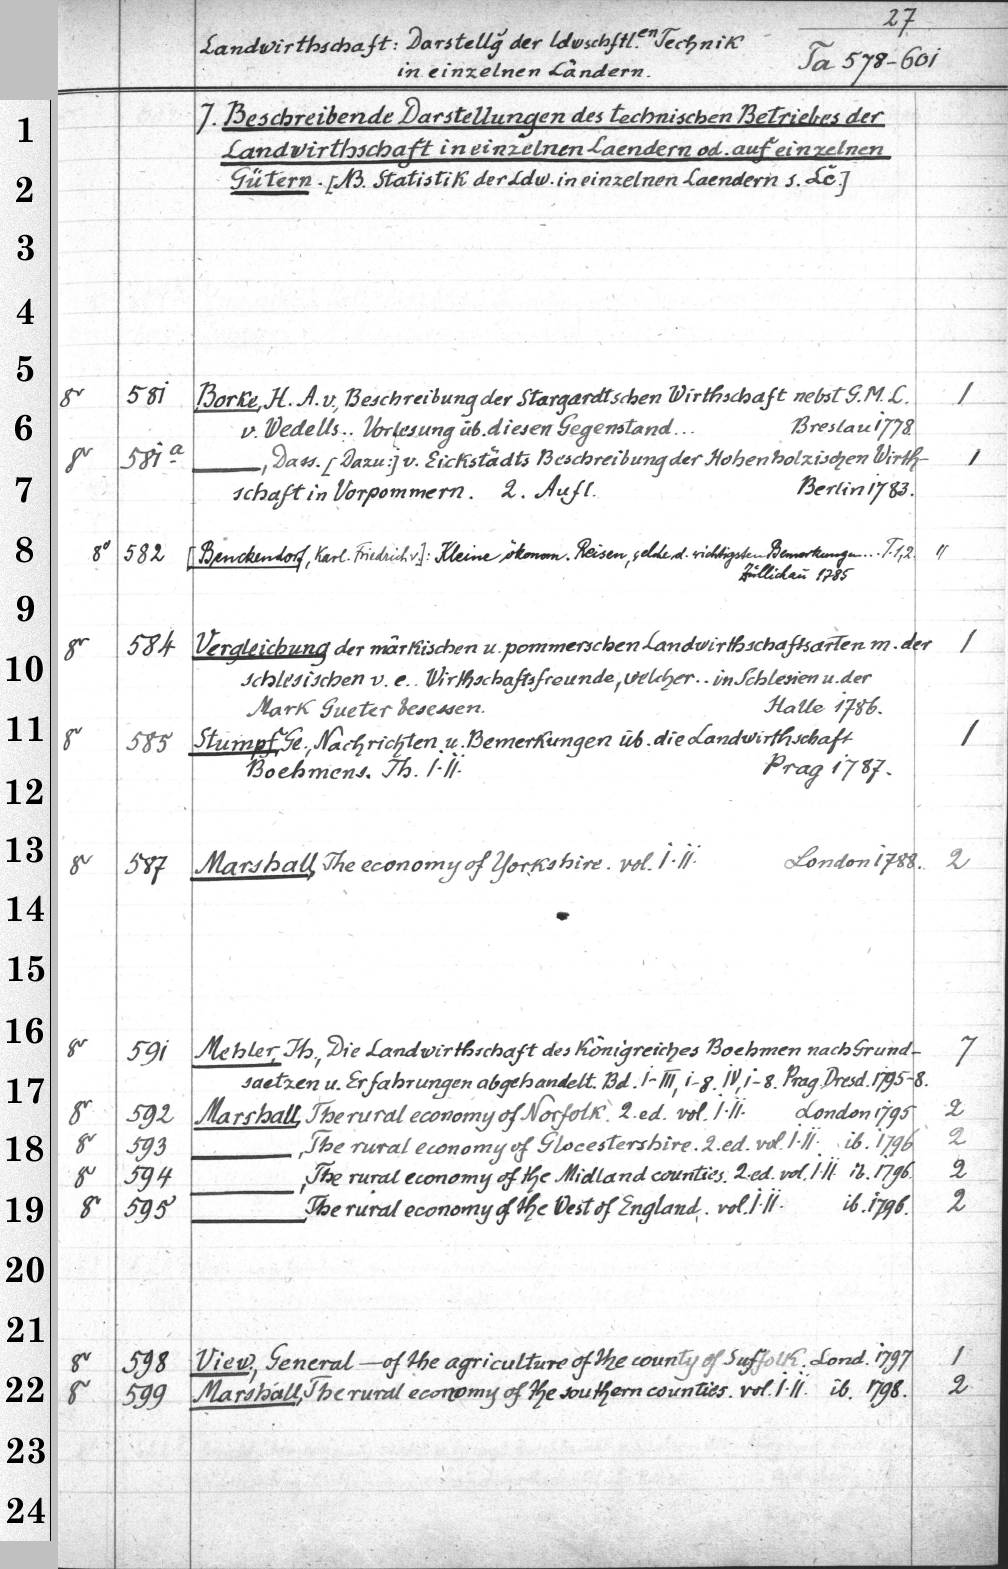 27
Landwirthschaft: Darstellg der ldwschftl.en Technik
Ta 578-601
in einzelnen Ländern.
1
7. Beschreibende Darstellungen des technischen Betriebes der
Landwirthschaft in einzelnen Laendern od. auf einzelnen
2
Gütern. [NB. Statistik der Ldw. in einzelnen Laendern s. Lč.]
3
4
5
8º 581 Borke, H. A. v., Beschreibung der Stargardtschen Wirthschaft nebst G. M. L. 1
6
v. Wedells.. Vorlesung üb. diesen Gegenstand... Breslau 1778.
8º 581a ____, Dass. [Dazu:] v. Eickstädts Beschreibung der Hohenholzischen Wirth- 1
7
schaft in Vorpommern. 2. Aufl. Berlin 1783.
8
8º 582 [Benckendorf, Karl. Friedrich v.]: Kleine ökonom. Reisen, welche d. wichtigsten Bemerkungen... T. 1,2. "
Züllichau 1785
9
8º 584 Vergleichung der märkischen u. pommerschen Landwirthschaftsarten m. der 1
10
schlesischen v. e.. Wirthschaftsfreunde, welcher.. in Schlesien u. der
Mark Gueter besessen. Halle 1786.
11
8º 585 Stumpf, Ge., Nachrichten u. Bemerkungen üb. die Landwirthschaft 1
Boehmens. Th. I-II. Prag 1787.
12
13
8º 587 Marshall, The economy of Yorkshire. vol. I-II. London 1788. 2
14
15
16
8º 591 Mehler, Th., Die Landwirthschaft des Königreiches Boehmen nach Grund- 7
saetzen u. Erfahrungen abgehandelt. Bd. I-III, 1-8. IV, 1-8. Prag, Dresd. 1795-8.
17
8º 592 Marshall, The rural economy of Norfolk. 2. ed. vol. I-II. London 1795 2
18
8º 593 ____, The rural economy of Glocestershire. 2. ed. vol. I-II. ib. 1796 2
8º 594 ____, The rural economy of the Midland counties. 2. ed. vol. I-II ib. 1796. 2
19
8º 595 ____, The rural economy of the West of England. vol. I-II. ib. 1796. 2
20
21
8º 598 View, General — of the agriculture of the county of Suffolk. Lond. 1797 1
22
8º 599 Marshall, The rural economy of the southern counties. vol. I-II. ib. 1798. 2
23
24